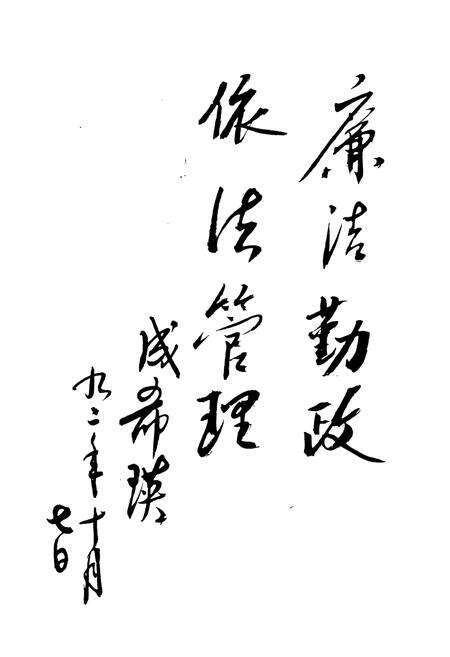 廉洁勤政
依法管理
成希瑛
九二年十月
七日